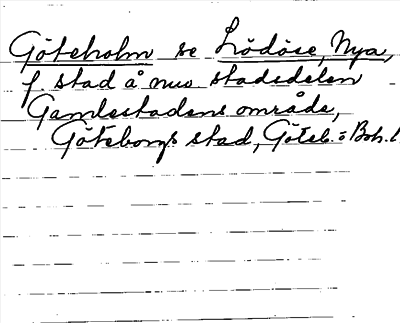 Göteholm se Lödöse, Nya,
f. stad å nuv stadsdelen
Gamlestadens område,
Göteborgs stad, Göteb. = Boh. l